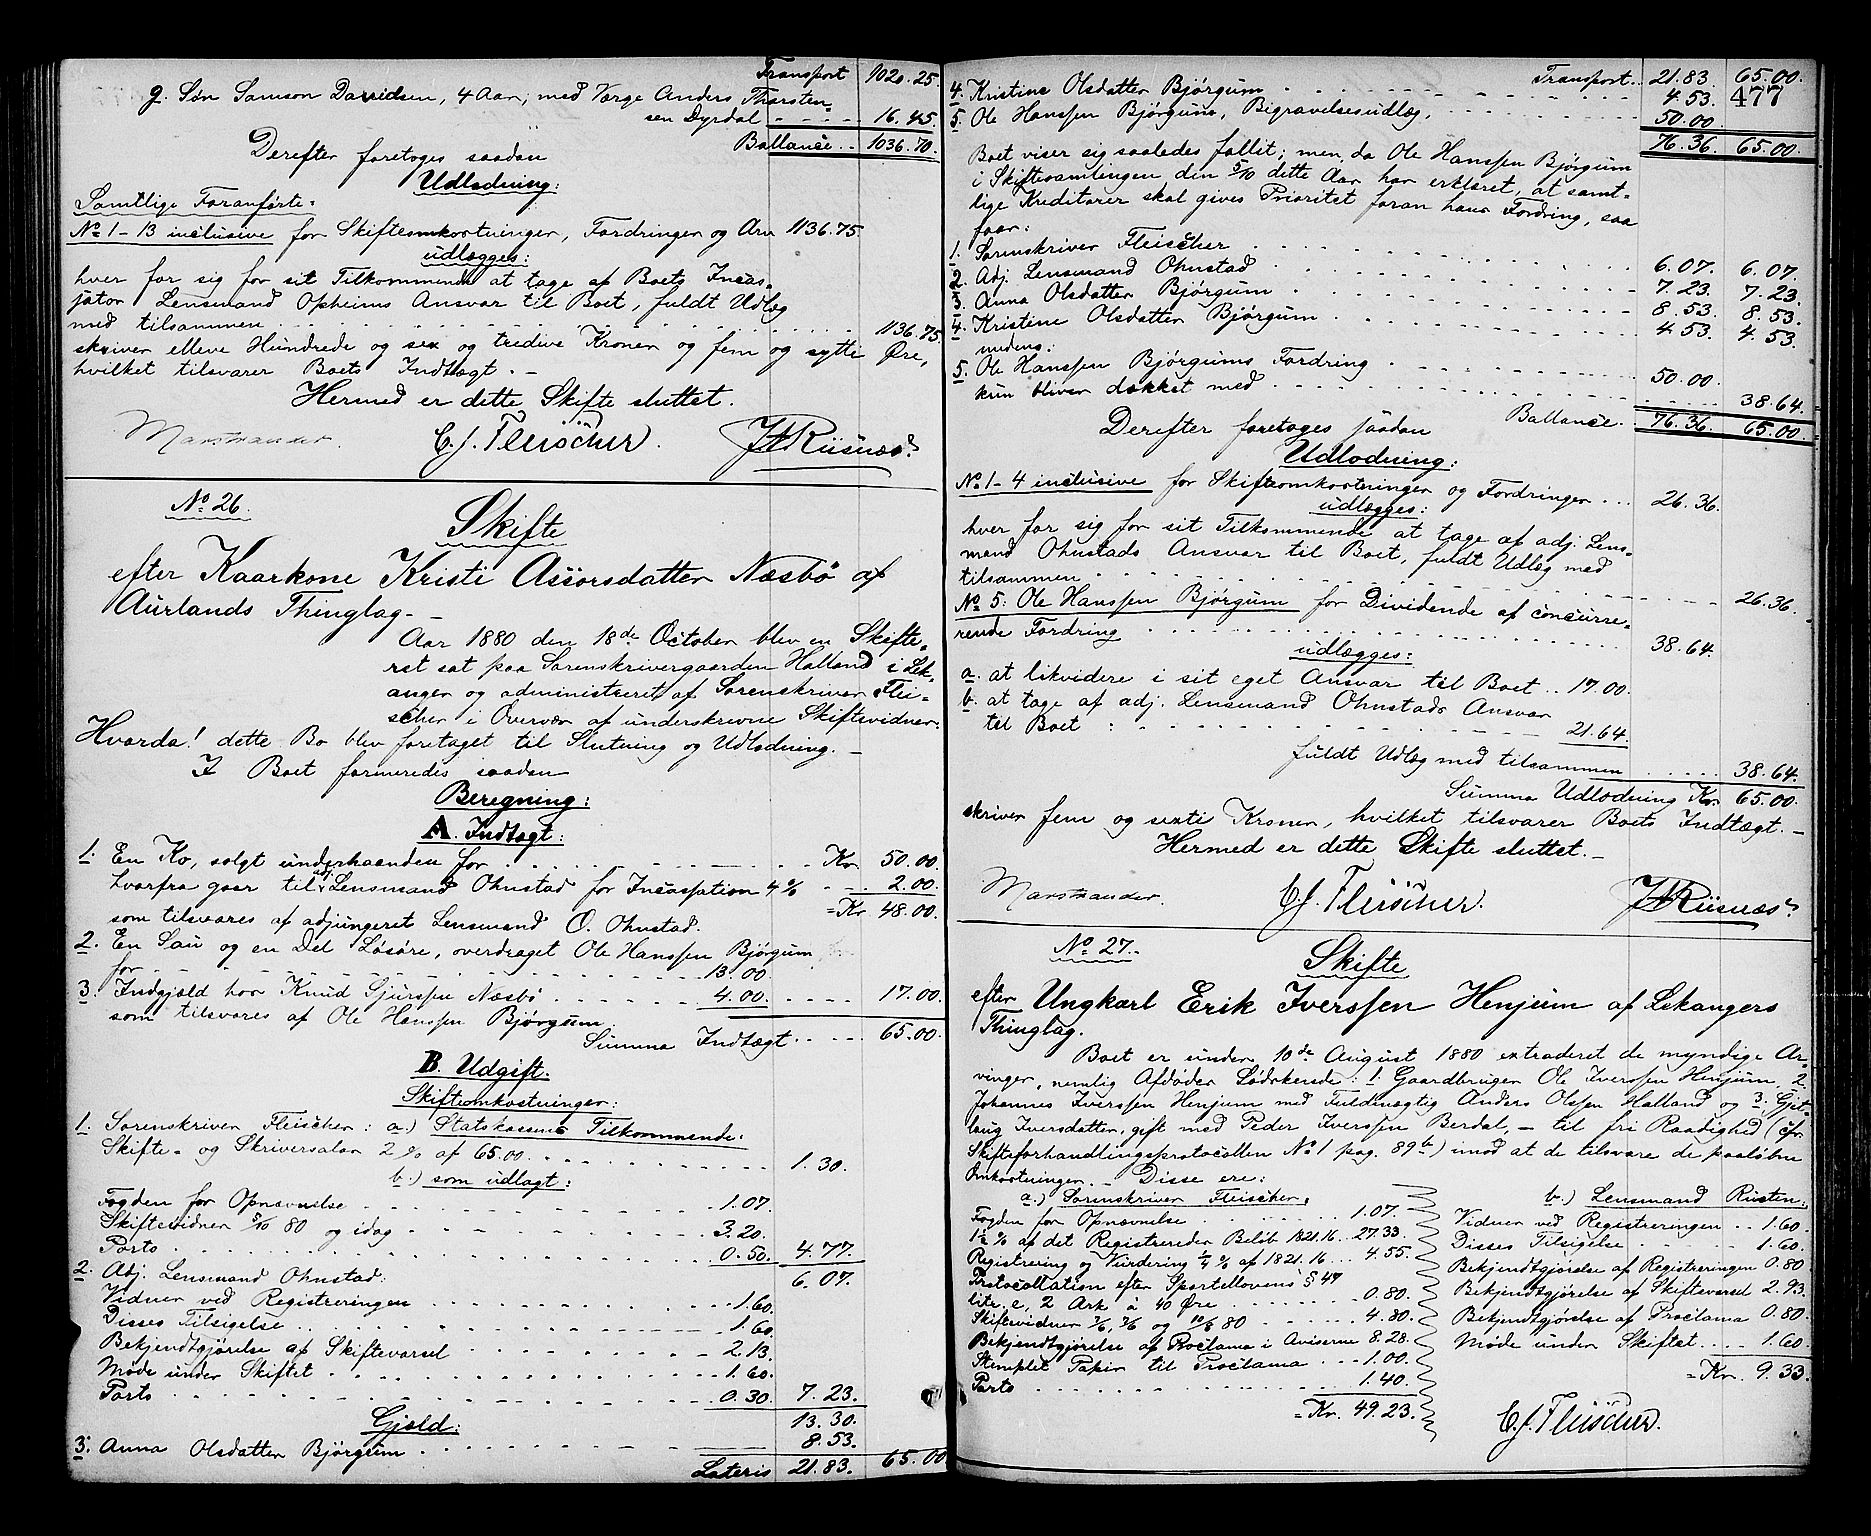 Transport 1020.25
g. Søn Samson Davidsen, 4 Aar, med Værge Anders Thorsten-
sen Dyrdal - - - - 16.45
Ballance.. 1036.70.
Derefter foretoges saadan
Udlodning:
Samtlige Foranførte-
No 1-13 inclusive for Skifteomkostninger, Fordringer og Arv 1136.75.
udlægges:
hver for sig for sit Tilkommende at tage af Boets Incas-
sator Lensmand Opheims Ansvar til Boet, fuldt Udlæg
med tilsammen . . . . . . 1136.75.
skriver elleve Hundrede og sex og tredive Kroner og fem og sytti Øre,
hvilket tilsvarer Boets Indtægt. -
Hermed er dette Skifte sluttet.
Marstrander. C. J. Fleischer. Riisnæs.
No 26.
Skifte
efter Kaarkone Kristi Assorsdatter Næsbø af
Aurlands Thinglag -
Aar 1880 den 18de October blev en Skifte-
ret sat paa Sorenskrivergaarden Halland i Lek-
anger og administreret af Sorenskriver Flei-
scher i Overvær af underskrevne Skiftevidner.
Hvorda! dette Bo blev foretaget til Slutning og Udlodning. -
I Boet formeredes saadan
Beregning:
A. Indtægt:
1. En Ko, solgt underhaanden for . . . . Kr. 50.00.
hvorfra gaar til adj. Lensmand Ohnstad for Incassation 4% - . . 2.00.
=Kr. 48.00.
som tilsvares af adjungeret Lensmand O. Ohnstad.
2. En Sau og en Del Løsøre, overdraget Ole Hanssen Bjørgum
for - - - - - 13.00.
3. Indgjæld hos Knud Sjurssen Næsbø . . . . 4.00. - - - - 17.00.
som tilsvares af Ole Hanssen Bjørgum
Summa Indtægt . . . . 65.00.
B. Udgift.
Skifteomkostninger:
1. Sorenskriver Fleischer: a.) Statskassens Tilkommende:
Skifte- og Skriversalær 2% af 65.00. . . . . . 1.30.
b.) som udlagt:
Fogden for Opnævnelse . . . . . 1.07
Skiftevidner 5/10 80 og idag - - - - 3.20.
Porto . . . . . 0.50. 4.77.
6.07.
2. Adj. Lensmand Ohnstad:
Vidner ved Registreringen . . . . . 1.60.
Disses Tilsigelse . . . . . 1.60.
Bekjendtgjørelse af Skiftevarsel . . . . . 2.13.
Møde under Skiftet . . . . . 1.60.
Porto . . . . . 0.30. 7.23.
13.30.
Gjæld:
3. Anna Olsdatter Bjørgum . . . . . 8.53.
Lateris 21.83. 65.00
477
Transport.. 21.83. 65.00.
4. Kristine Olsdatter Bjørgum . . . . . 4.53.
5. Ole Hanssen Bjørgum, Begravelsesudlæg, . . . . . 50.00.
76.36. 65.00.
Boet viser sig saaledes fallit; men da Ole Hanssen Bjørgum
i Skiftesamlingen den 5/10 dette Aar har erklæret, at samt-
lige Kreditorer skal gives Prioritet foran hans Fordring, saa
faar:
1. Sorenskriver Fleischer . . . . . 6.07. 6.07.
2. Adj. Lensmand Ohnstad . . . . . 7.23. 7.23.
3. Anna Olsdatter Bjørgum . . . . . 8.53. 8.53.
4. Kristine Olsdatter Bjørgum . . . . . 4.53. 4.53.
medens:
5. Ole Hanssen Bjørgums Fordring . . . . . 50.00.
kun bliver dækket med . . . . . 38.64.
Ballance. 76.36. 65.00.
Derefter foretoges saadan
Udlodning:
No 1-4 inclusive for Skifteomkostninger og Fordringer . . . 26.36.
udlægges:
hver for sig for sit Tilkommende at tage af adj. Lens-
mand Ohnstads Ansvar til Boet, fuldt Udlæg med
tilsammen . . . . . 26.36.
No 5: Ole Hanssen Bjørgum for Dividende af concurre-
rende Fordring . . . . . 38.64.
udlægges:
a. at likvidere i sit eget Ansvar til Boet .. 17.00.
b. at tage af adj. Lensmand Ohnstads Ansvar
til Boet : . . . . . 21.64.
fuldt Udlæg med tilsammen . . . . . 38.64.
Summa Udlodning Kr. 65.00.
skriver fem og sexti Kroner, hvilket tilsvarer Boets Indtægt. -
Hermed er dette Skifte sluttet. -
Marstrander. C. J. Fleischer. Riisnæs.
No 27.
Skifte
efter Ungkarl Erik Iverssen Henjum af Lekangers
Thinglag.
Boet er under 10de August 1880 extraderet de myndige Ar-
vinger, nemlig Afdødes Sødskende: 1. Gaardbruger Ole Iverssen Henjum, 2.
Johannes Iverssen Henjum med Fuldmægtig Anders Olssen Halland og 3. Gjet-
laug Iversdatter, gift med Peder Iverssen Berdal, - til fri Raadighed (cfr.
Skifteforhandlingsprotocollen No 1 pag. 89b) imod at de tilsvare de paaløbne
Omkostninger. - Disse ere:
a.) Sorenskriver Fleischer:
Fogden for Opnævnelse . . . . . 1.07.
1½% af det Registrerede Beløb 1821.16... 27.33
Registrering og Vurdering ¼% af 1821.16... 4.55.
Protocollation efter Sportellovens § 47
litr. c, 2 Ark à 40 Øre . . . . . 0.80.
Skiftevidner 3/6, 3/6 og 10/8 80 . . . . 4.80.
Bekjendtgjørelse af Proclama i Aviserne 8.28.
Stemplet Papir til Proclama . . . 1.00.
Porto . . . . . 1.40.
=Kr. 49.23.
b.) Lensmand Rusten:
Vidner ved Registreringen . . . 1.60.
Disses Tilsigelse . . . . 1.60.
Bekjendtgjørelse af Registreringen 0.80
Bekjendtgjørelse af Skiftevarsel 2.93.
Bekjendtgjørelse af Proclama 0.80.
Møde under Skiftet . . . . 1.60.
=Kr. 9.33.
C. J. Fleischer.